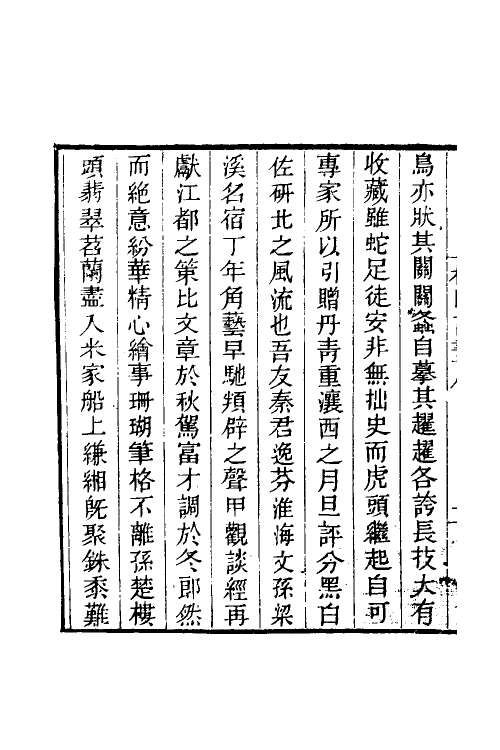 鳥亦狀其關關螽自摹其趯趯各誇長技大有
收藏雖蛇足徒安非無拙史而虎頭繼起自可
專家所以引贈丹靑重瀼西之月旦評分黑白
佐研北之風流也吾友秦君逸芬淮海文孫梁
溪名宿丁年角藝早馳頖辟之聲甲觀談經再
獻江都之策比文章於秋駕富才調於冬郎然
而絶意紛華精心繪事珊瑚筆格不離孫楚樓
頭翡翠苕蘭盡入米家船上縑緗旣聚銖黍難